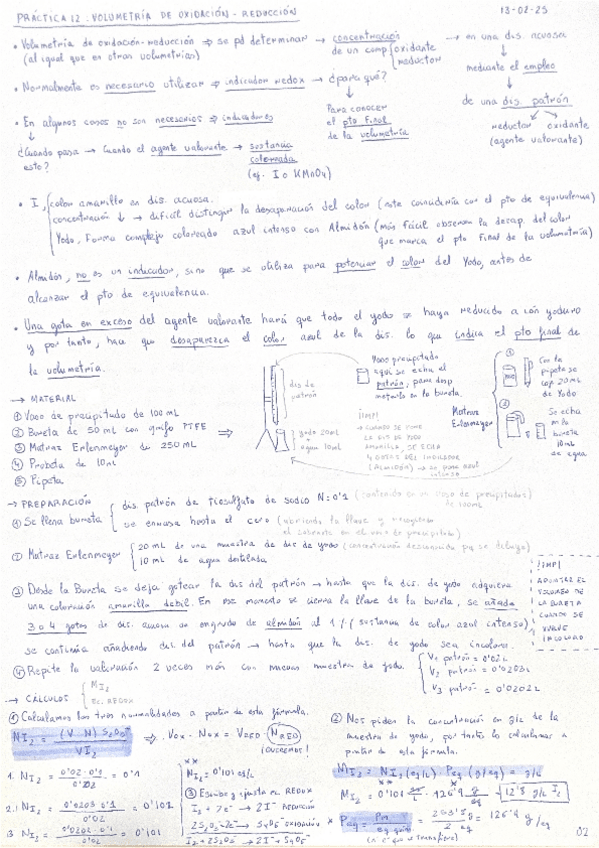 PRÁCTICA 12: VOLUMETRÍA DE OXIDACIÓN - REDUCCIÓN 13-02-25
• Volumetría de oxidación-reducción ⇒ se pd determinar → concentración → en una dis. acuosa
(al igual que en otras volumetrías) de un comp oxidante
reductor
mediante el empleo
de una dis. patrón
reductor oxidante
(agente valorante)
• Normalmente es necesario utilizar ⇒ indicador redox → ¿para qué?
Para conocer
el pto final
de la volumetría
• En algunos casos no son necesarios ⇒ indicadores
¿Cuando pasa → Cuando el agente valorante → sustancia
esto? coloreada
(ej. I o KMnO4)
• I, color amarillo en dis. acuosa.
concentración ↓ → difícil distinguir la desaparación del color (este coincidiría con el pto de equivalencia)
Yodo, Forma complejo coloreado azul intenso con Almidón (más fácil observar la desap. del color
que marca el pto final de la volumetría)
• Almidón, no es un indicador, sino que se utiliza para potenciar el color del Yodo, antes de
alcanzar el pto de equivalencia.
• Una gota en exceso del agente valorante hará que todo el yodo se haya reducido a ión yoduro
y por tanto, hace que desaparezca el color azul de la dis. lo que indica el pto final de
la volumetría.
→ MATERIAL
① Vaso de precipitado de 100 mL
② Bureta de 50 mL con grifo PTFE ⇒
③ Matraz Erlenmeyer de 250 mL
④ Probeta de 10 mL
⑤ Pipeta
dis de
patrón
yodo 20mL
+
agua 10mL
Vaso precipitado
aquí se echa el
patrón, para desp
meterlo en la bureta.
¡IMP!
→ CUANDO SE PONE
LA DIS DE YODO
AMARILLA, SE ECHA
4 GOTAS DEL INDICADOR
(ALMIDÓN) → se pone azul
intenso
Matraz
Erlenmeyer
① Con la
pipeta se
coge 20 mL
de Yodo
② Se echa
10 mL
de agua
→ PREPARACIÓN
① Se llena bureta dis. patrón de tiosulfato de sodio N: 0'1 (contenido en un vaso de precipitados)
de 100 mL
se enrasa hasta el cero (abriendo la llave y recogiendo
el sobrante en el vaso de precipitado)
② Matraz Erlenmeyer 20 mL de una muestra de dis de yodo (concentración desconocida)
10 mL de agua destilada
③ Desde la Bureta se deja gotear la dis del patrón → hasta que la dis. de yodo adquiera
una coloración amarilla débil. En ese momento se cierra la llave de la bureta, se añade
3 o 4 gotas de dis. acuosa de almidón al 1% (sustancia de color azul intenso)
se continua añadiendo dis. del patrón → hasta que la dis. de yodo sea incolora.
¡IMP!
APUNTAR EL
LA BURETA
CUANDO SE
VUELVE
INCOLORO
④ Repite la valoración 2 veces más con nuevas muestra de yodo.
V1 patrón = 0'02 L
V2 patrón = 0'0203 L
V3 patrón = 0'0202 L
→ CÁLCULOS MI2
EC. REDOX
① Calculamos las tres normalidades a partir de esta fórmula.
NI2 = (V · N) S2O3= / VI2 ⇒ Vox · Nox = VRED · NRED
1. NI2 = 0'02 · 0'1 / 0'02 = 0'1
2. NI2 = 0'0203 · 0'1 / 0'02 = 0'101
3 NI2 = 0'0202 · 0'1 / 0'02 = 0'101
③ Escribe y ajusta ec. REDOX
I2 + 2e- → 2I- REDUCCIÓN
2S2O3= - 2e- → S4O6= OXIDACIÓN
I2 + 2S2O3= → 2I- + S4O6=
② Nos piden la concentración en g/L de la
muestra de yodo, por tanto lo calculamos a
partir de esta fórmula.
MI2 = NI2 (eq/L) · Peq (g/eq) = g/L
MI2 = 0'101 eq/L · 126'9 g/eq = 12'8 g/L I2